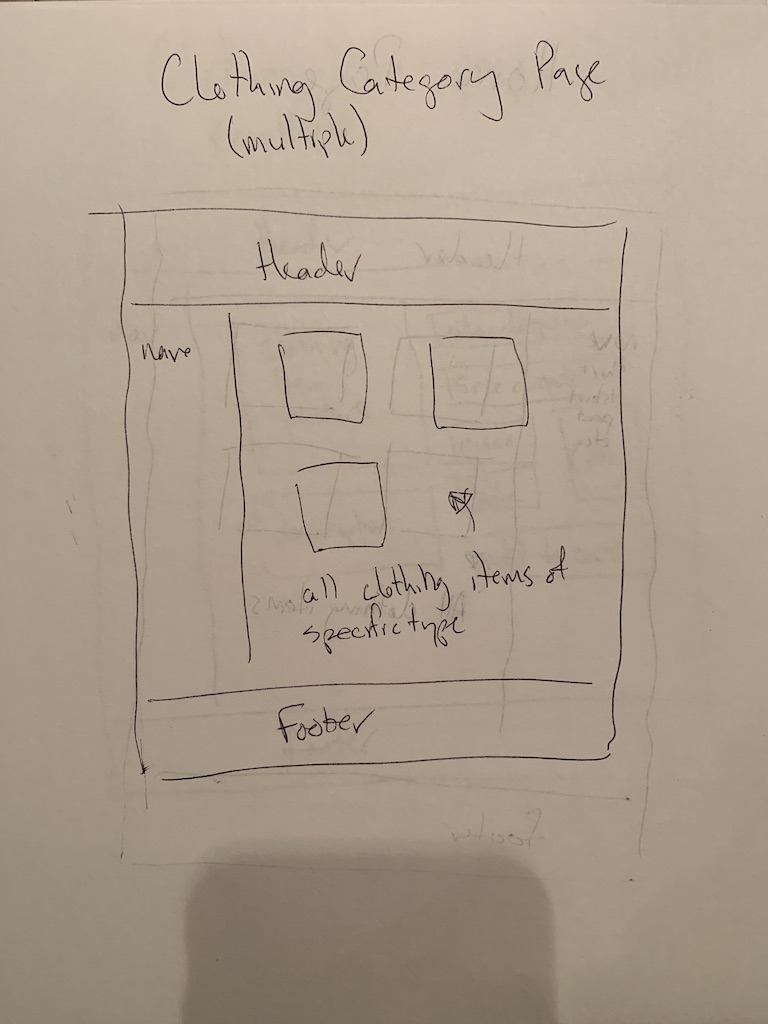 Clothing Category Page
(multiple)
Header
nave
all clothing items of
specific type
Footer